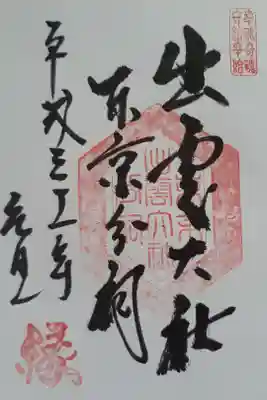 出雲大社
東京分祠
平成三一年
元旦
縁